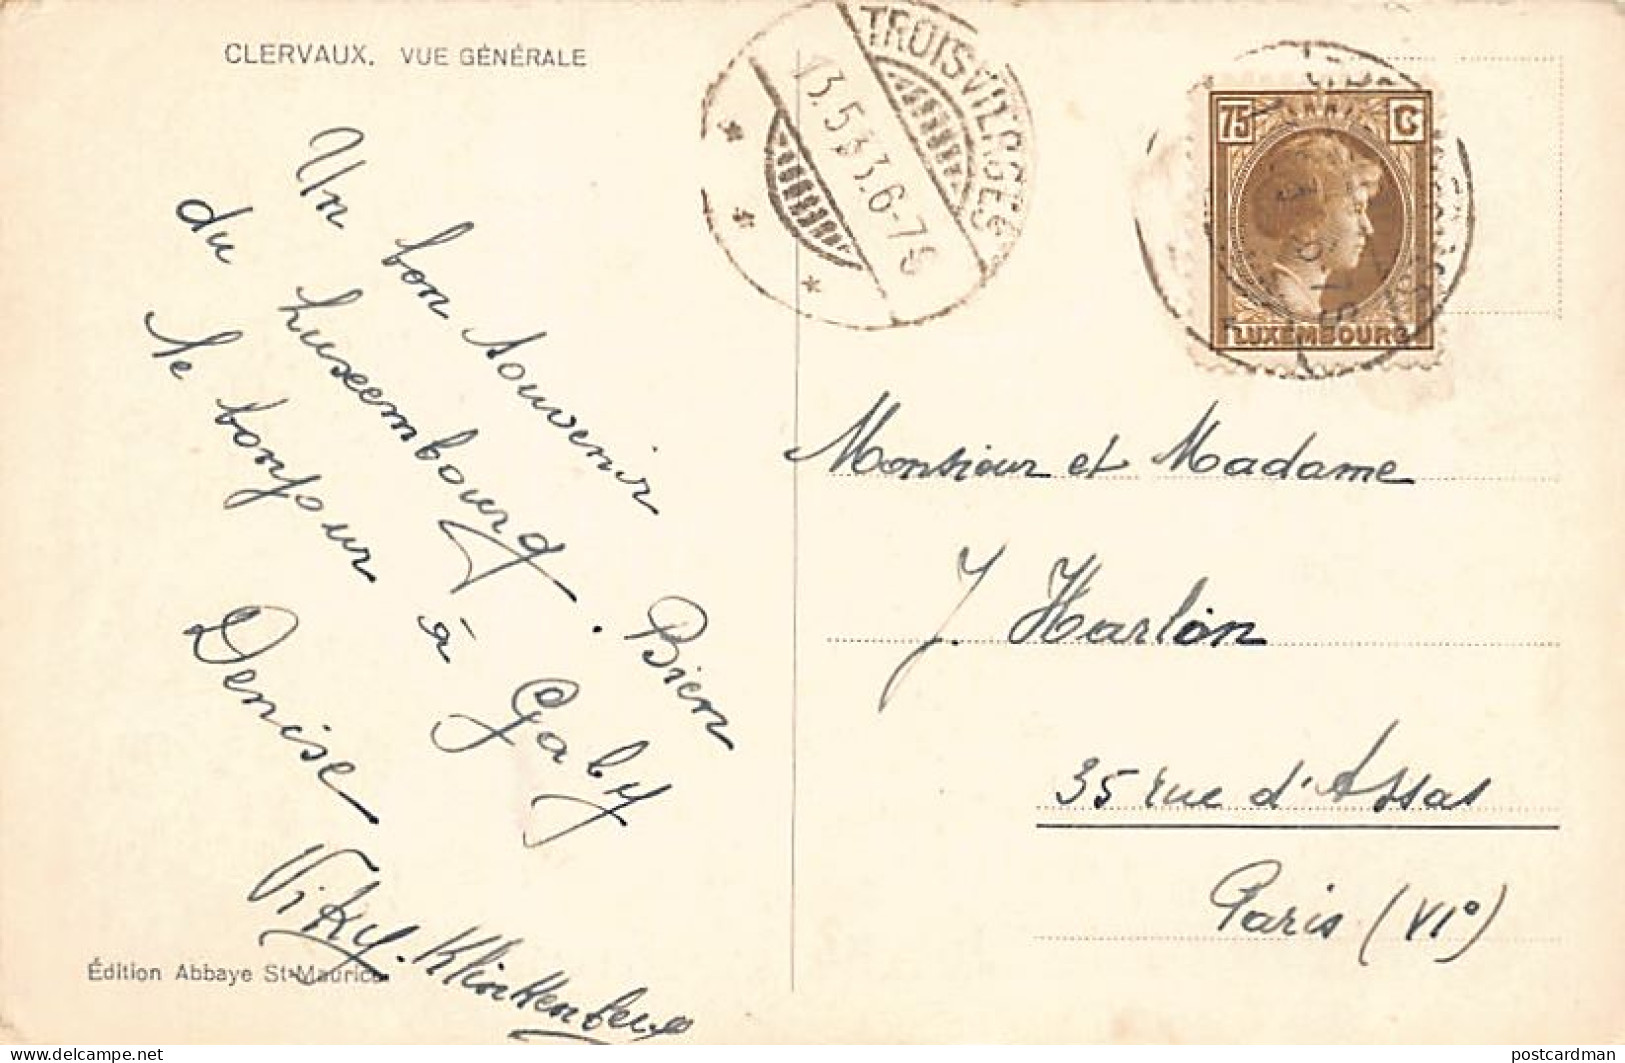 CLERVAUX. VUE GÉNÉRALE
TROISVIERGES
13.5.33.6-7S
75 C
LUXEMBOURG
Un bon souvenir
du Luxembourg. Bien
le bonjour à Gaby
Denise
Viky. Klinkenberg
Monsieur et Madame
J. Harlon
35 rue d'Assas
Paris (VI°)
Édition Abbaye St-Maurice
delcampe.net
postcardman